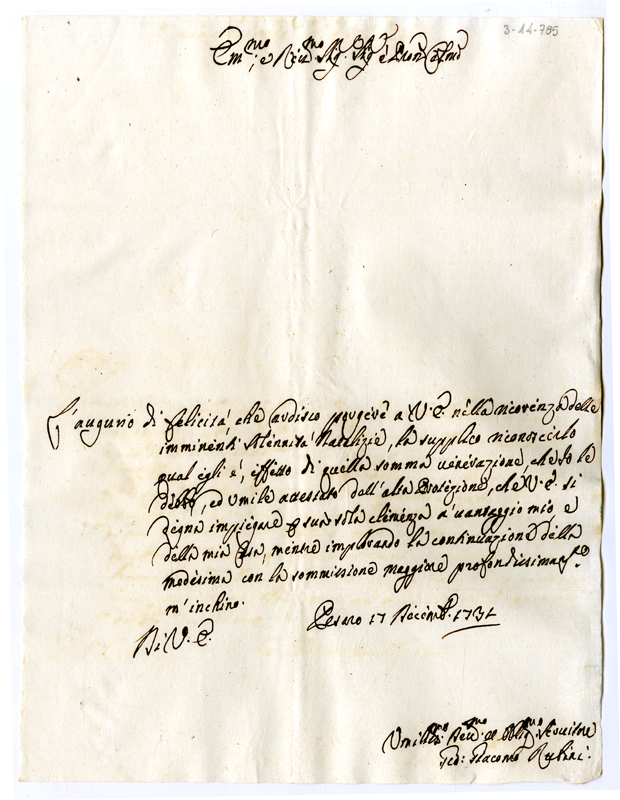 3-14-785
Em.mo; e Re.mo Sig. Sig. e Pron Colmo
L'augurio di felicità, che ardisco porgere a V. E. nella ricorrenza delle
imminenti Solennità Natalizie, la supplico riconoscerlo
qual egli è, effetto di quella somma venerazione, che io le
debbo, ed umile attestato dell'alta Protezione, che V. E. si
degna impiegare p sua sola clemenza a vantaggio mio e
della mia Casa, mentre implorando la continuazione della
medesima con la sommissione maggiore profondissimam.e
m'inchino.
Di V. E.
Pesaro 17 Decemb. 1731
Umiliss.mo Dev.mo ed Oblig.mo Servitore
Giacomo